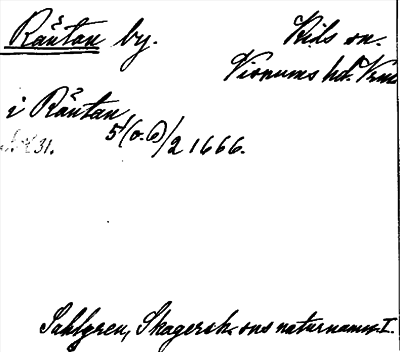 Råntan by. Kils sn.
Visnums hd. Vrml
i Råntan
31. 5/(o.6)/2 1666.
Sahlgren, Skagershs ons naturnamn. I.